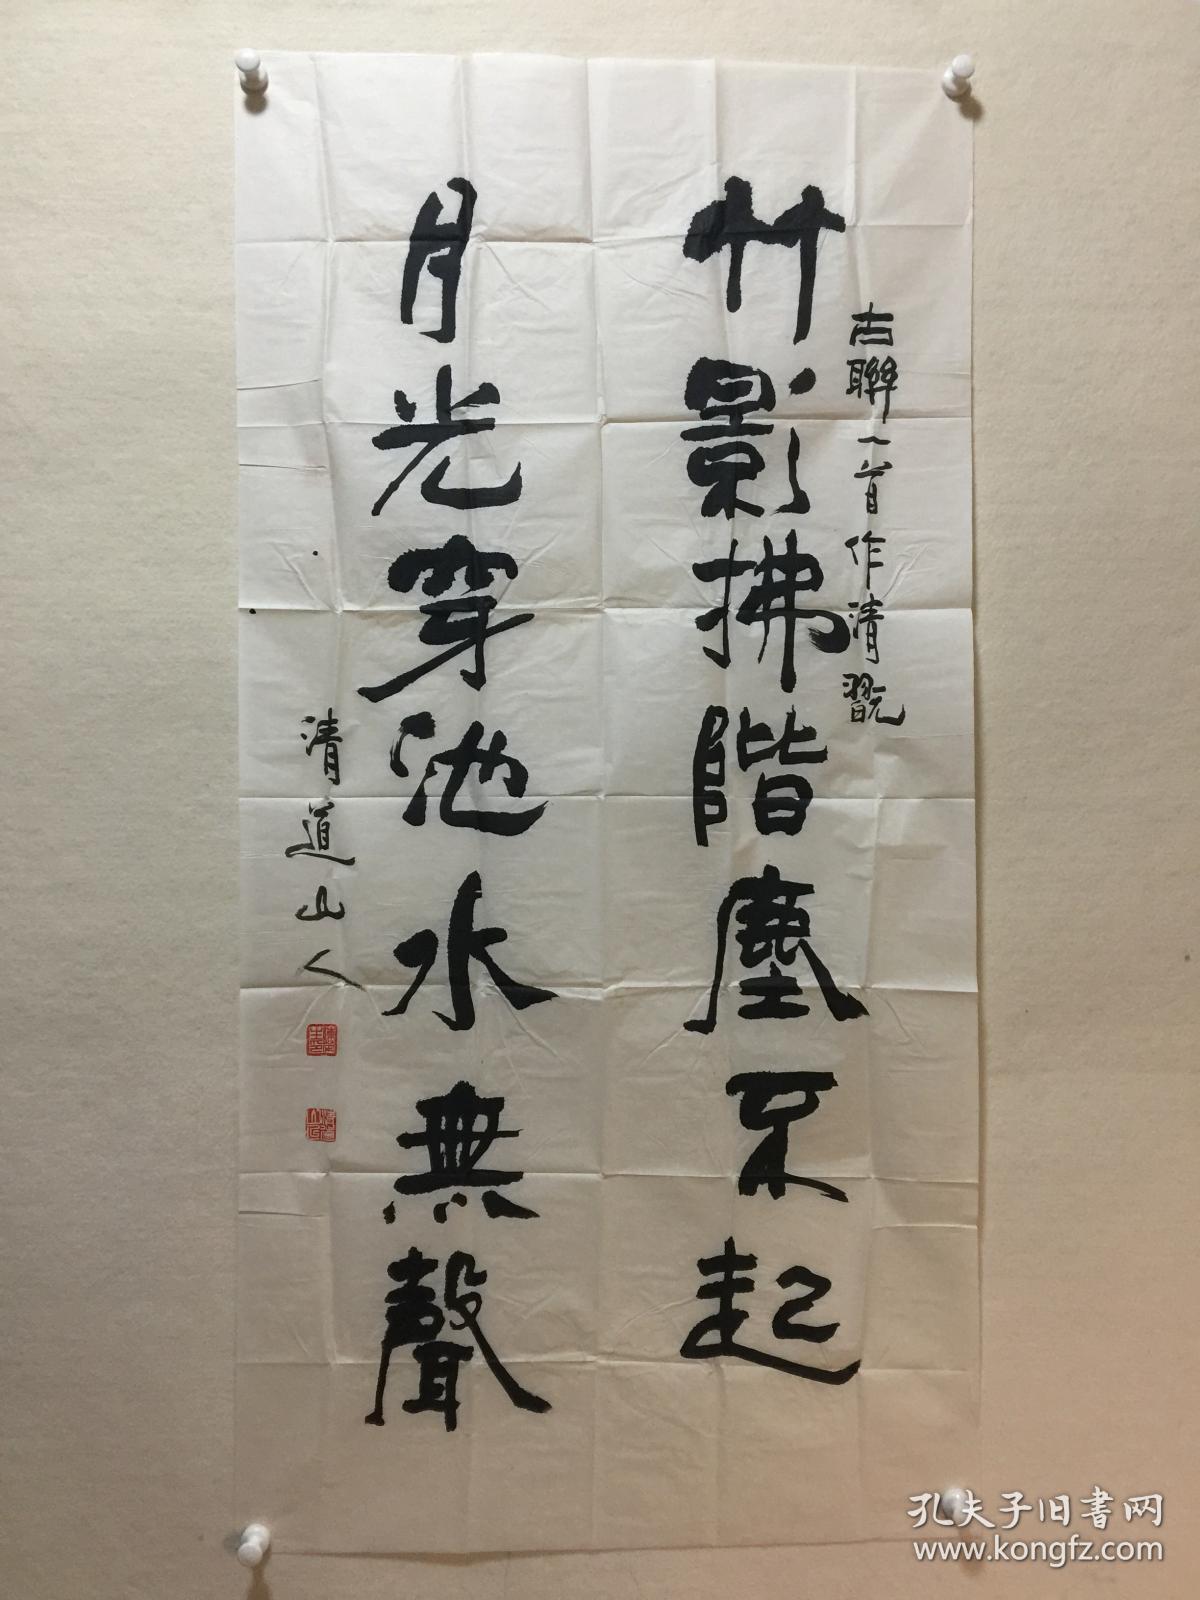 古聯一首作清翫
竹影拂階塵不起
月光穿池水無聲
清道山人
孔夫子旧书网
www.kongfz.com